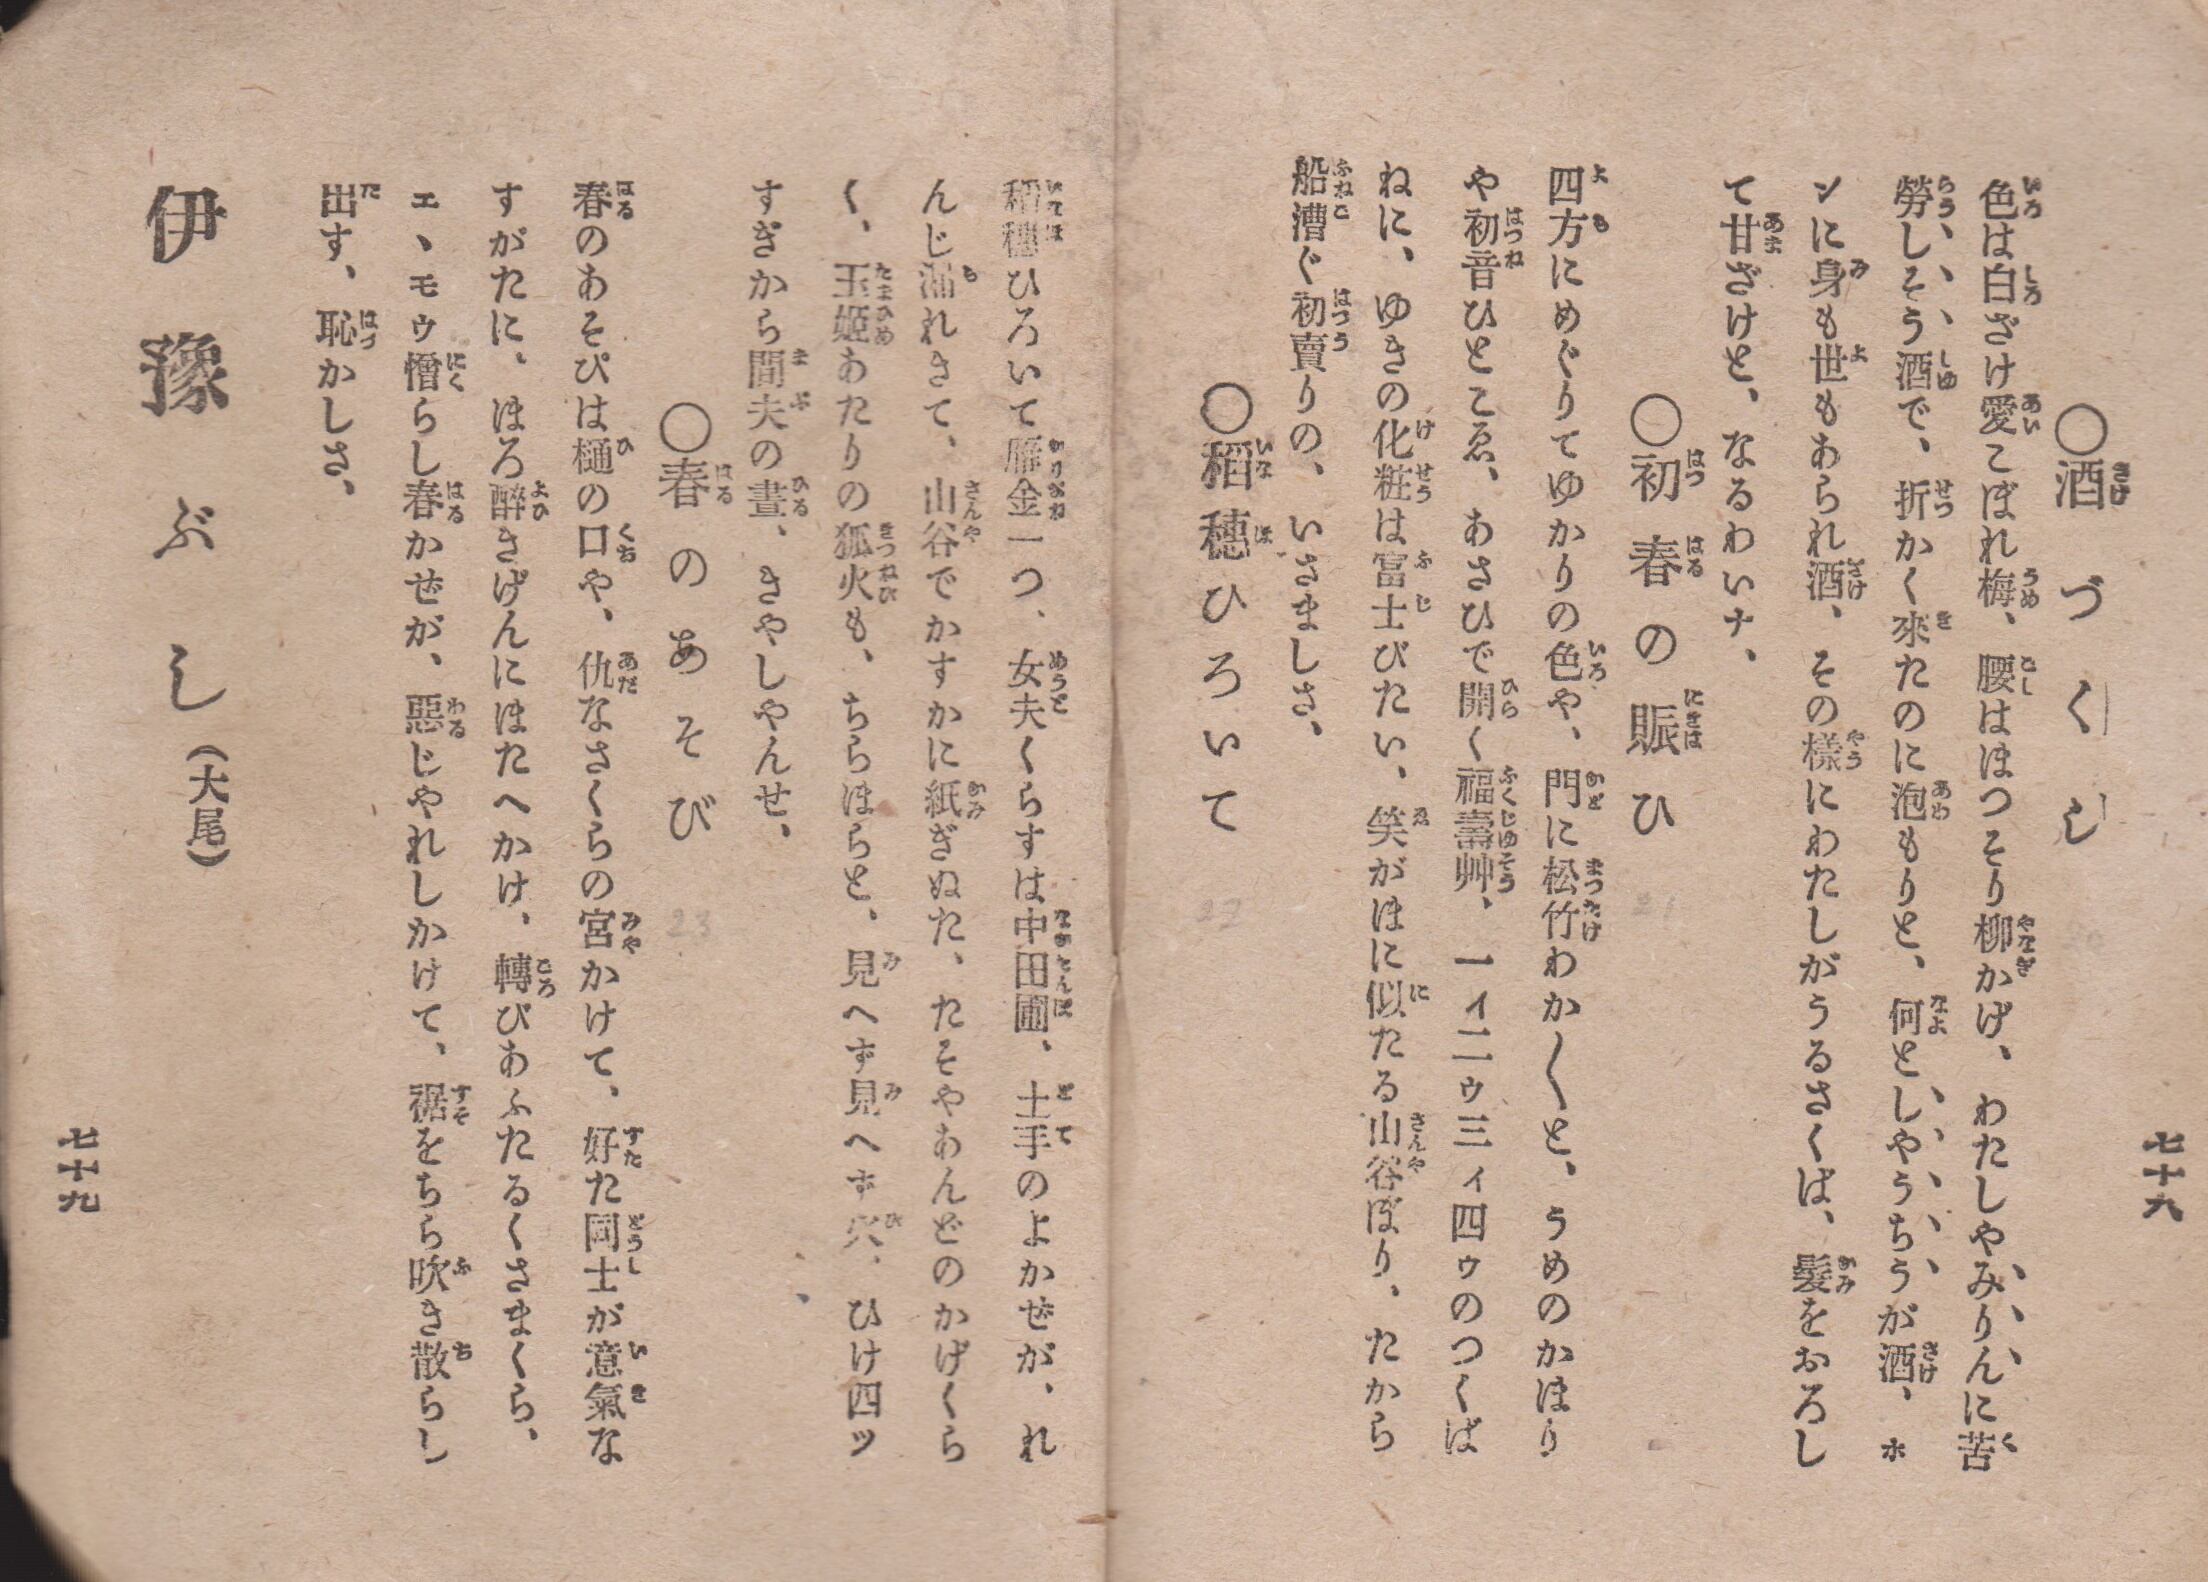 ○酒づくし
色は白ざけ愛こぼれ梅、腰はほつそり柳かげ、わたしやみりんに苦
勞しそう酒で、折かく來たのに泡もりと、何としやうちうが酒、ホ
ンに身も世もあられ酒、その樣にわたしがうるさくば、髮をおろし
て甘ざけと、なるわいナ、
○初春の賑ひ
四方にめぐりてゆかりの色や、門に松竹わか〳〵と、うめのかほり
や初音ひとこゑ、あさひで開く福壽艸、一ィ二ゥ三ィ四ゥのつくば
ねに、ゆきの化粧は富士びたい、笑がほに似たる山谷ぼり、たから
船漕ぐ初賣りの、いさましさ、
○稻穗ひろいて
稻穗ひろいて雁金一つ、女夫くらすは中田圃、土手のよかぜが、れ
んじ漏れきて、山谷でかすかに紙ぎぬた、たそやあんどのかげくら
く、玉姬あたりの狐火も、ちらほらと、見へず見へず穴、ひけ四ッ
すぎから間夫の晝、きやしやんせ、
○春のあそび
春のあそびは樋の口や、仇なさくらの宮かけて、好た同士が意氣な
すがたに、ほろ醉きげんにほたへかけ、轉びあふたるくさまくら、
エヽモゥ憎らし春かぜが、惡じやれしかけて、裾をちら吹き散らし
出す、恥かしさ、
伊豫ぶし（大尾）
七十八
七十九